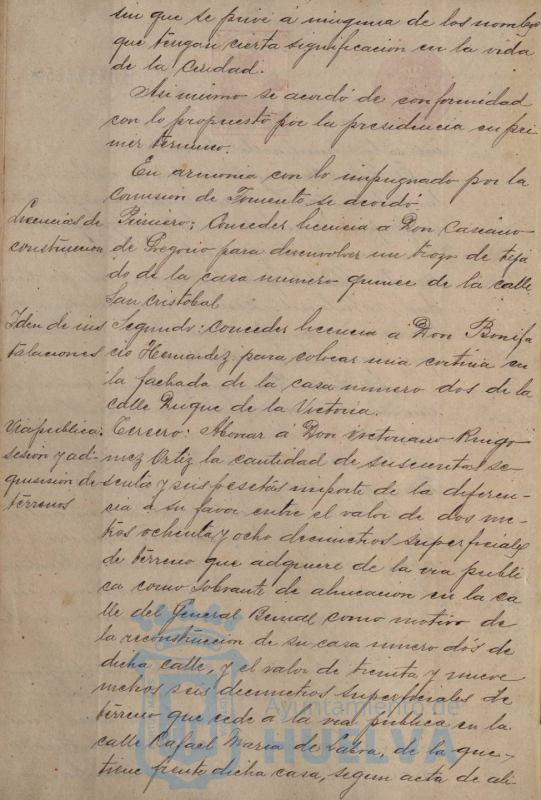 sin que se prive á ninguna de los nombres
que tengan cierta significacion en la vida
de la Ciudad.
Asimismo se acordó de conformidad
con lo propuesto por la presidencia en pri
mer termino.
En armonia con lo impugnado por la
Comision de Fomento se acordó
Licencias de
construccion
Primero: Conceder licencia a Don Casiano
de Gregorio para desenvolver un trozo de teja
do de la casa numero quince de la calle
San Cristobal
Iden de ins
talaciones
Segundo: Conceder licencia a Don Bonifa
cio Hernandez para colocar una cortina en
la fachada de la casa numero dos de la
calle Duque de la Victoria.
Via publica:
sesion y ad-
quisision de
terrenos
Tercero: Abonar á Don Victoriano
mez Ortiz la cantidad de seiscientas se
senta y seis pesetas importe de la diferen-
cia á su favor entre el valor de dos me-
tros ochenta y ocho decimetros superficiales
de terreno que adquiere de la via publi
ca como sobrante de alineacion en la ca
lle del General Bernal como motivo de
la reconstruccion de su casa numero dós de
dicha calle, y el valor de treinta y nueve
metros seis decimetros superficiales de
terreno que cede á la via publica en la
calle Rafael Maria de Labra, de la que
tiene frente dicha casa, segun acta de ali
Ayuntamiento de
HUELVA